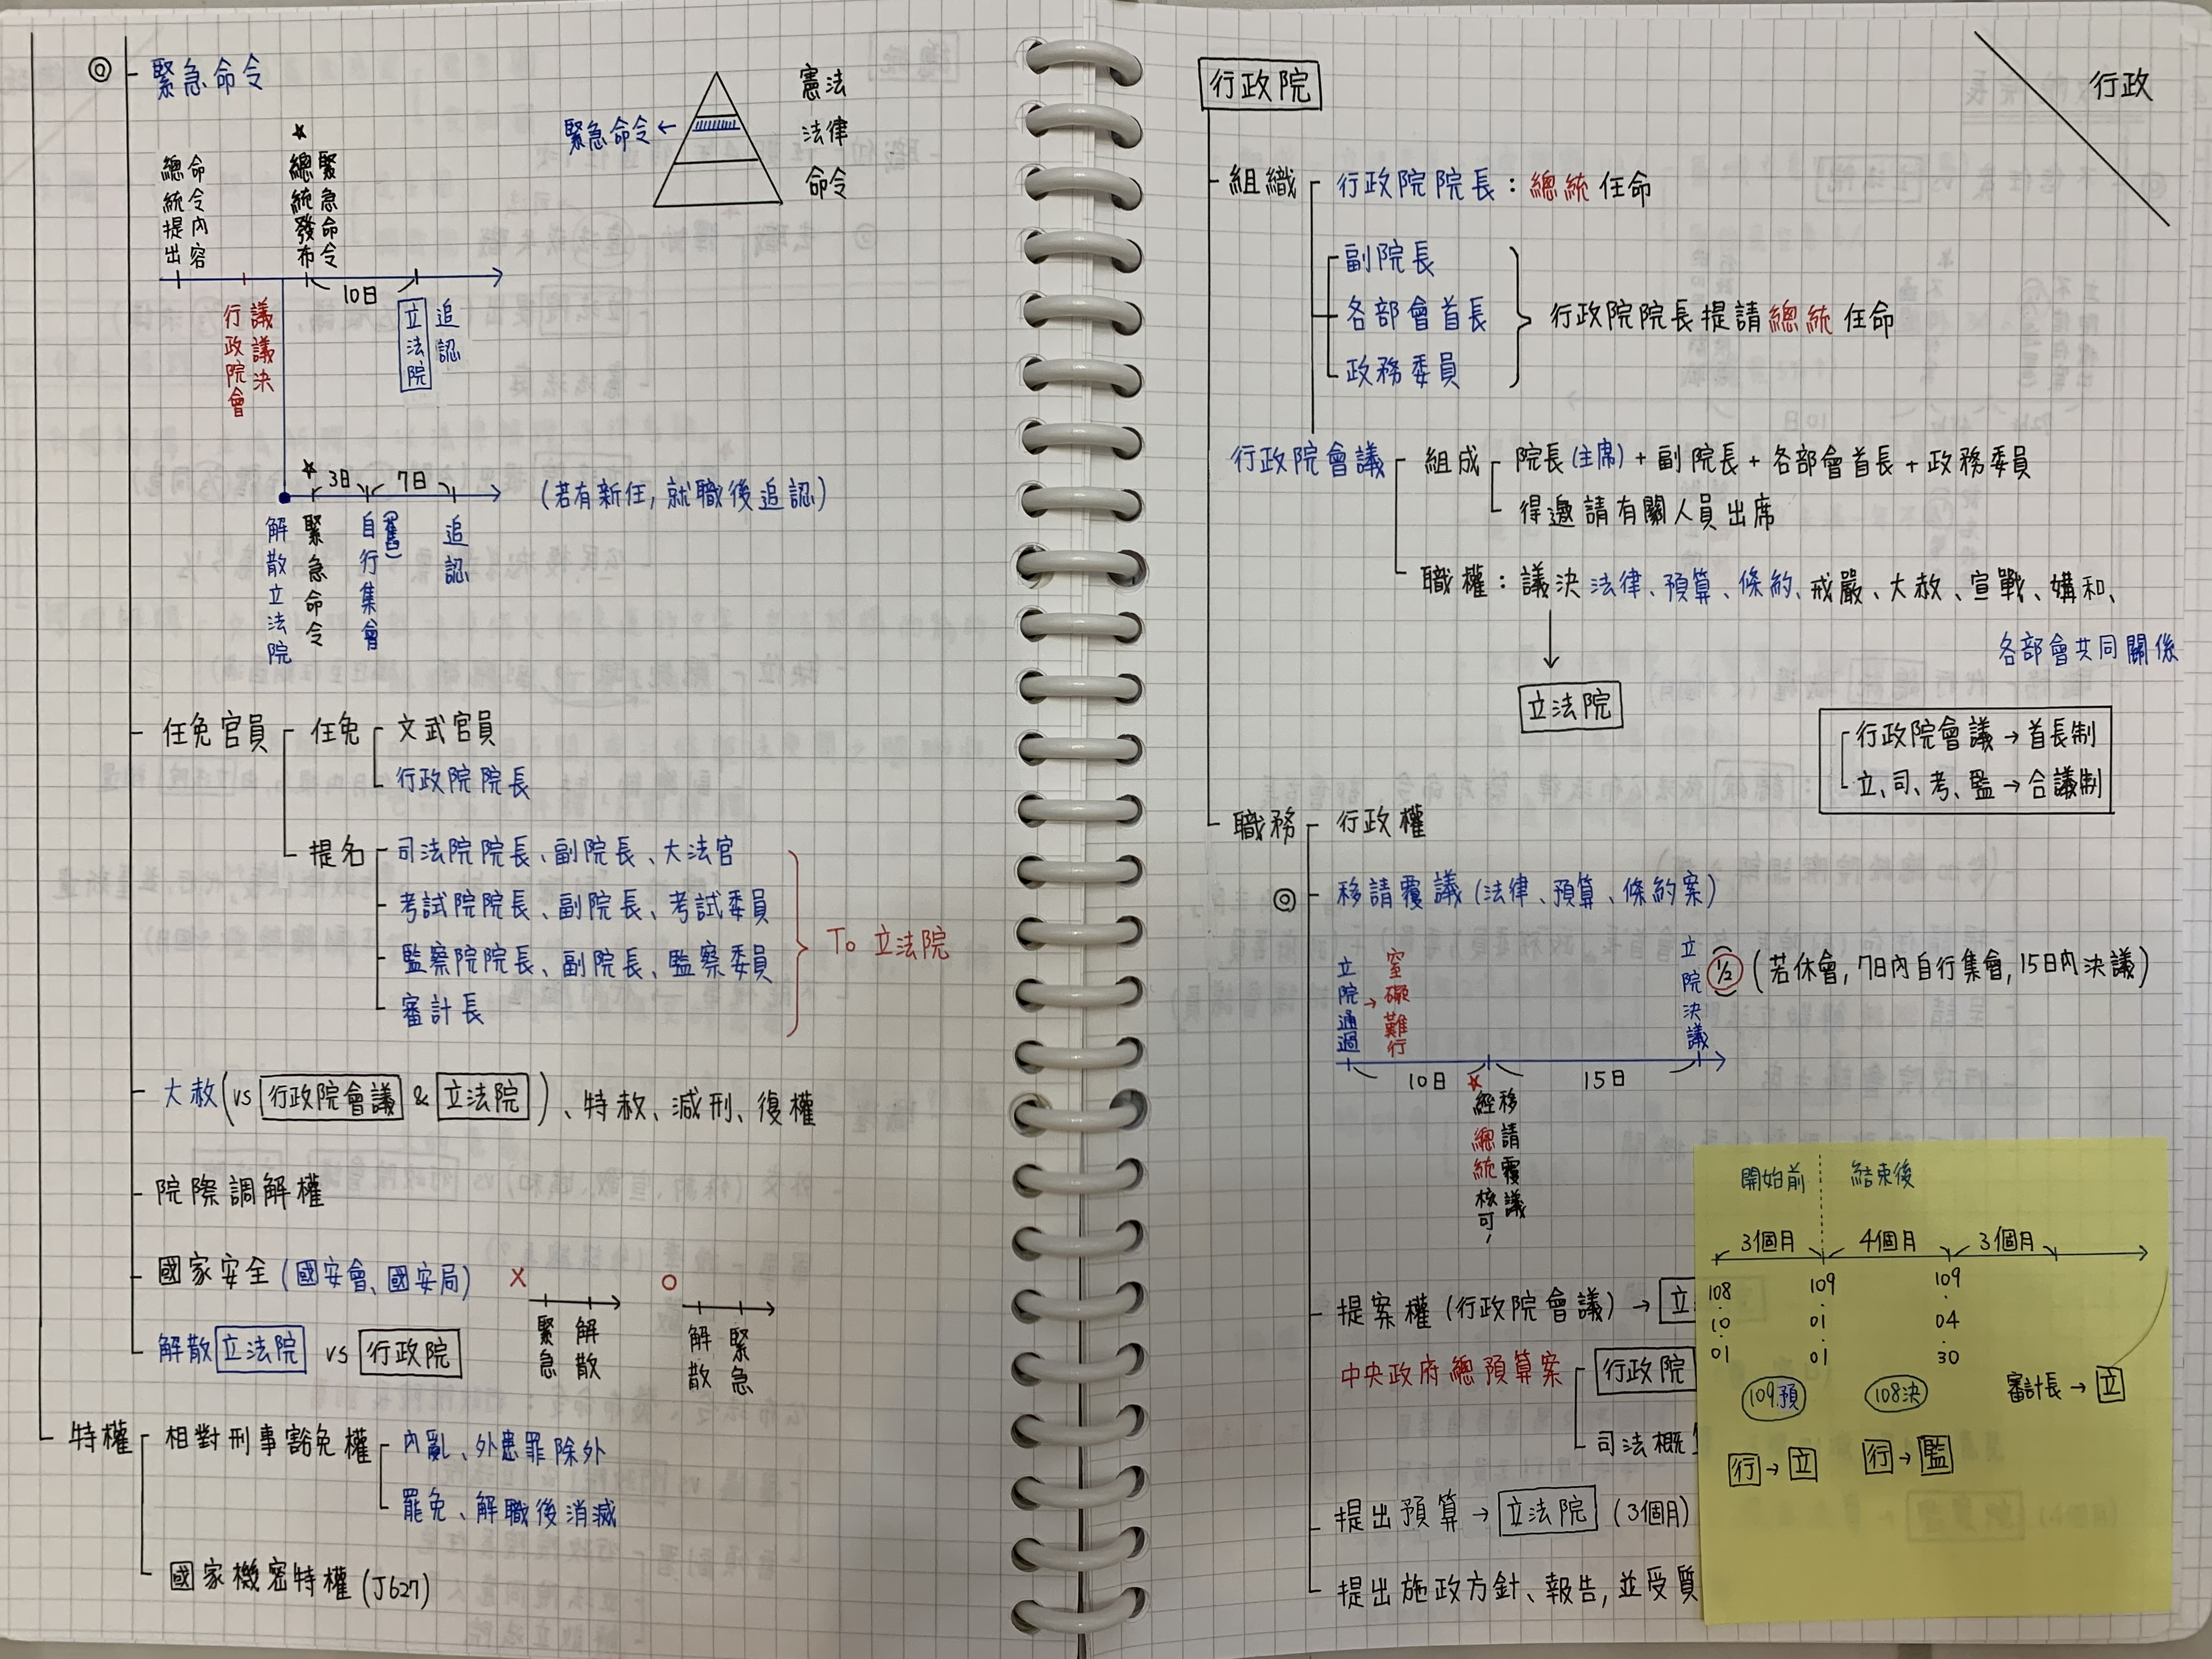 ◎ 緊急命令
憲法
緊急命令← 法律
命令
總統提出命令內容
★總統發布緊急命令
10日
行政院會議議決
立法院追認
★ 3日 7日 (若有新任,就職後追認)
解散立法院
緊急命令
自行集會(舊)
追認
任免官員 任免 文武官員
行政院院長
提名 司法院院長、副院長、大法官
考試院院長、副院長、考試委員
監察院院長、副院長、監察委員
審計長
To 立法院
大赦(vs 行政院會議 & 立法院)、特赦、減刑、復權
院際調解權
國家安全(國安會、國安局)
X 緊急 解散
O 解散 緊急
解散立法院 vs 行政院
特權 相對刑事豁免權 內亂、外患罪除外
罷免、解職後消滅
國家機密特權(J627)
行政
行政院
組織 行政院院長:總統任命
副院長
各部會首長
政務委員
行政院院長提請總統任命
行政院會議 組成 院長(主席)+副院長+各部會首長+政務委員
得邀請有關人員出席
職權:議決法律、預算、條約、戒嚴、大赦、宣戰、媾和、
各部會共同關係
立法院
行政院會議→首長制
立、司、考、監→合議制
職務 行政權
◎ 移請覆議(法律、預算、條約案)
立院通過→窒礙難行
立院決議 1/2 (若休會,7日內自行集會,15日內決議)
10日 15日
★經總統核可,移請覆議
提案權(行政院會議)→立
中央政府總預算案 行政院
司法概
提出預算→立法院(3個月)
提出施政方針、報告,並受質
開始前 結束後
3個月 4個月 3個月
108.10.01
109.01.01
109.04.30
109預 108決
審計長→立
行→立 行→監